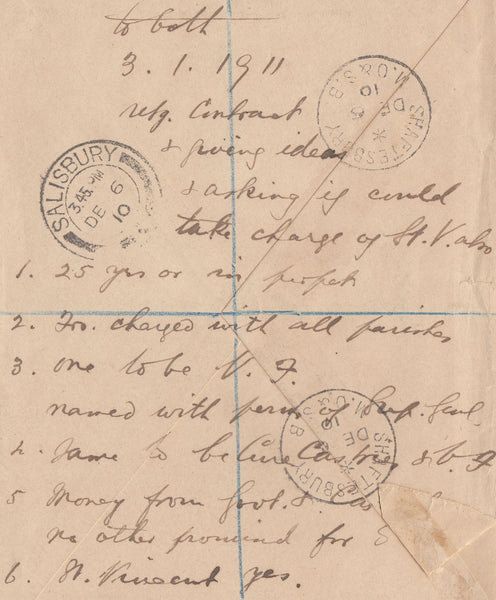 to both
3.1.1911
refg. Contract
& giving ideas
& asking if could
take charge of St. V. also
1. 25 yrs or in perpet
2. Frs. charged with all parishes
3. One to be V. F.
named with perm of Sup. Genl.
4. Same to be Cure Castries & V. F
5 Money from Govt. &
no other promised for
6. St. Vincent yes.
SALISBURY
3.45 PM
DE 6
10
SHAFTESBURY M.O & S.B
DE 6
10
SHAFTESBURY M.O & S.B
DE 6
10